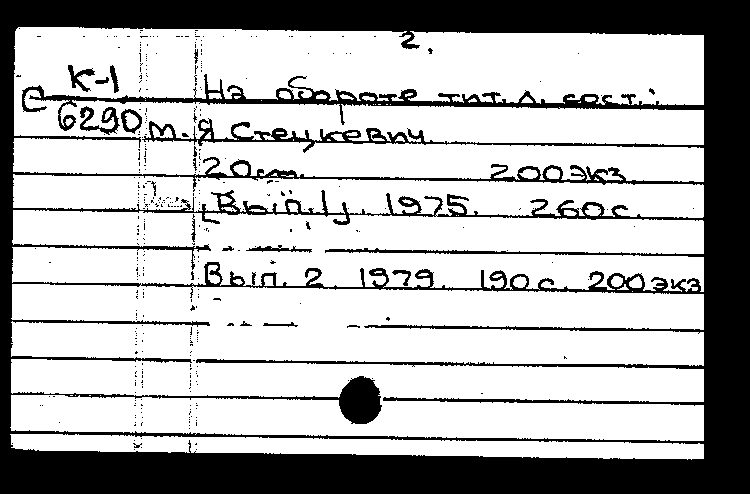 2.
С К-1 На обороте тит. л. сост.:
6290 М. Я. Стецкевич
20 см. 200 экз.
[Вып. 1]. 1975. 260 с.
Вып. 2. 1979. 190 с. 200 экз